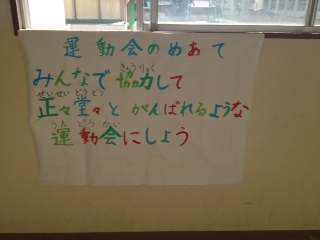 運動会のめあて
みんなで協力して
正々堂々とがんばれるような
運動会にしよう